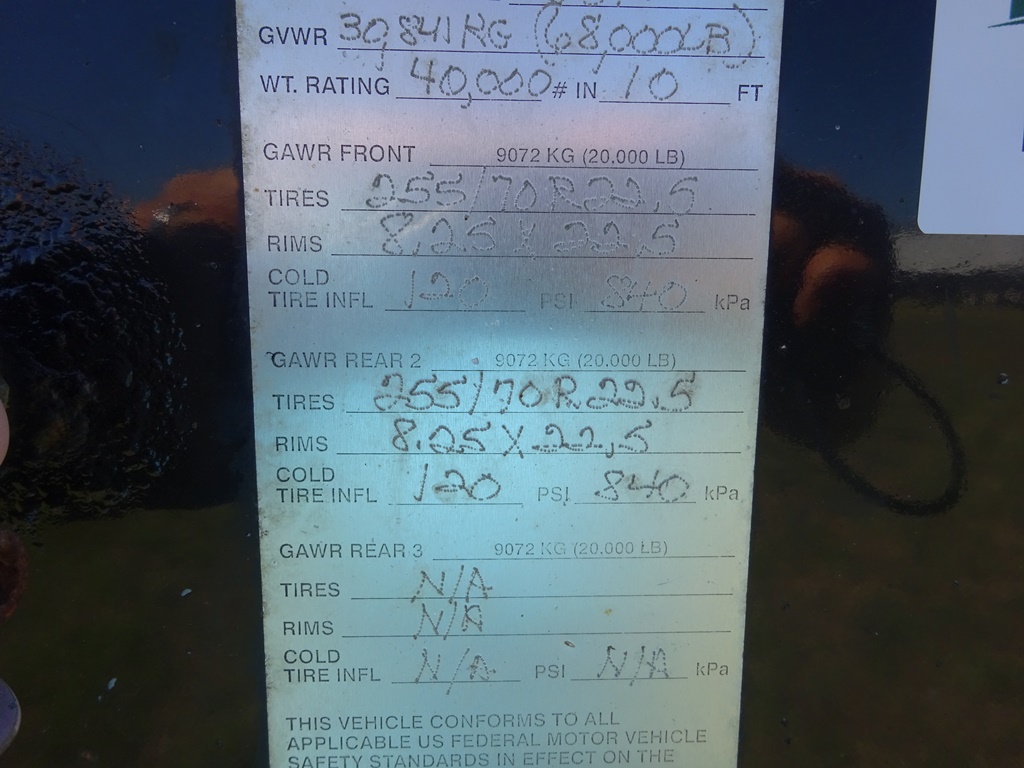 GVWR 30,841 KG (68,000LB)
WT. RATING 40,000 # IN 10 FT
GAWR FRONT 9072 KG (20,000 LB)
TIRES 255/70R22.5
RIMS 8.25 X 22.5
COLD
TIRE INFL 120 PSI 840 kPa
GAWR REAR 2 9072 KG (20,000 LB)
TIRES 255/70R22.5
RIMS 8.25 X 22.5
COLD
TIRE INFL 120 PSI 840 kPa
GAWR REAR 3 9072 KG (20,000 LB)
TIRES N/A
RIMS N/A
COLD
TIRE INFL N/A PSI N/A kPa
THIS VEHICLE CONFORMS TO ALL
APPLICABLE US FEDERAL MOTOR VEHICLE
SAFETY STANDARDS IN EFFECT ON THE